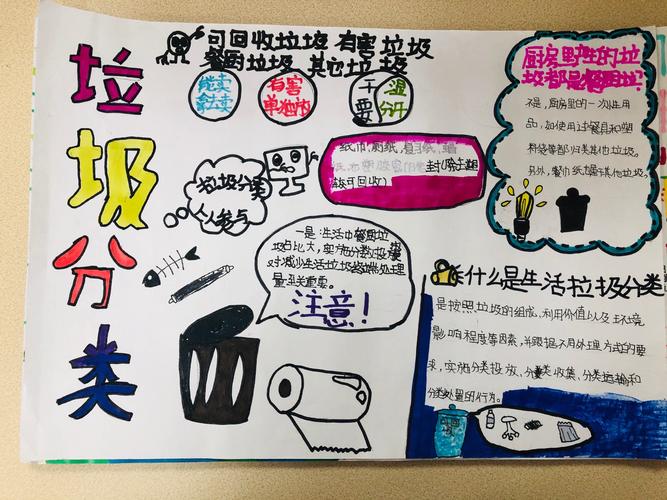 垃圾分类
可回收垃圾 有害垃圾
餐厨垃圾 其它垃圾
能卖
拿去卖
有害
单独放
干湿
要分开
厨房产生的垃
圾都是餐厨垃圾?
不是,厨房里的一次性用
品,如使用过餐具和塑
料袋等都归类其他垃圾。
另外,餐巾纸属于其他垃圾。
垃圾分类
人人参与
纸巾,厕纸
封(除土烟
可回收)
一是:生活中餐厨垃
圾占比大,实施分类投放
对减少生活垃圾终端处理
量至关重要。
注意!
什么是生活垃圾分类
是按照垃圾的组成、利用价值以及环境
影响程度等因素,并跟据不同处理方式的要
求,实施分类投放、分类收集、分类运输和
分类处置的行为。